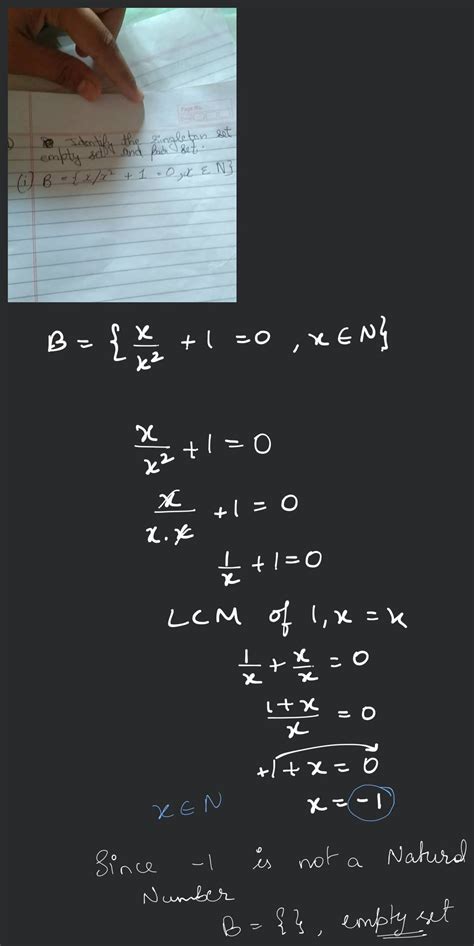 Identify the singleton set
empty set and pair set.
(i) B = {x/x² + 1 = 0, x ∈ N}
B = {x/x² + 1 = 0, x ∈ N}
x/x² + 1 = 0
x/x.x + 1 = 0
1/x + 1 = 0
LCM of 1, x = x
1/x + x/x = 0
1+x/x = 0
+1 + x = 0
x ∈ N x = -1
Since -1 is not a Natural
Number
B = { }, empty set